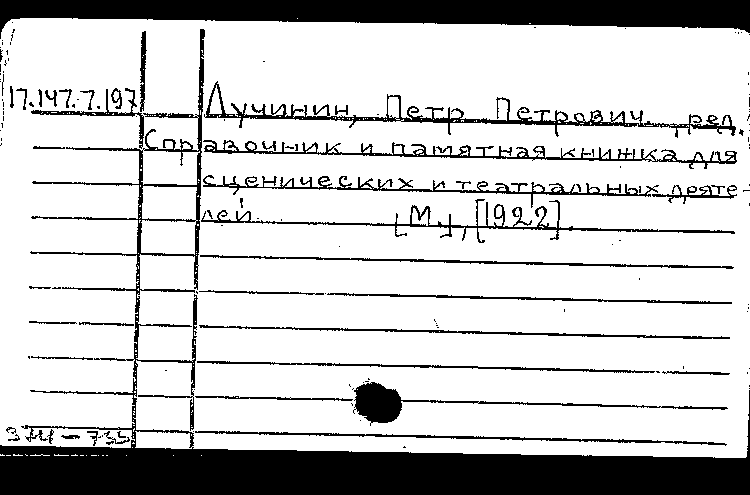 17.147.7.197 Лучинин, Петр Петрович, ред.
Справочник и памятная книжка для
сценических и театральных деяте-
лей. [М.], [1922].